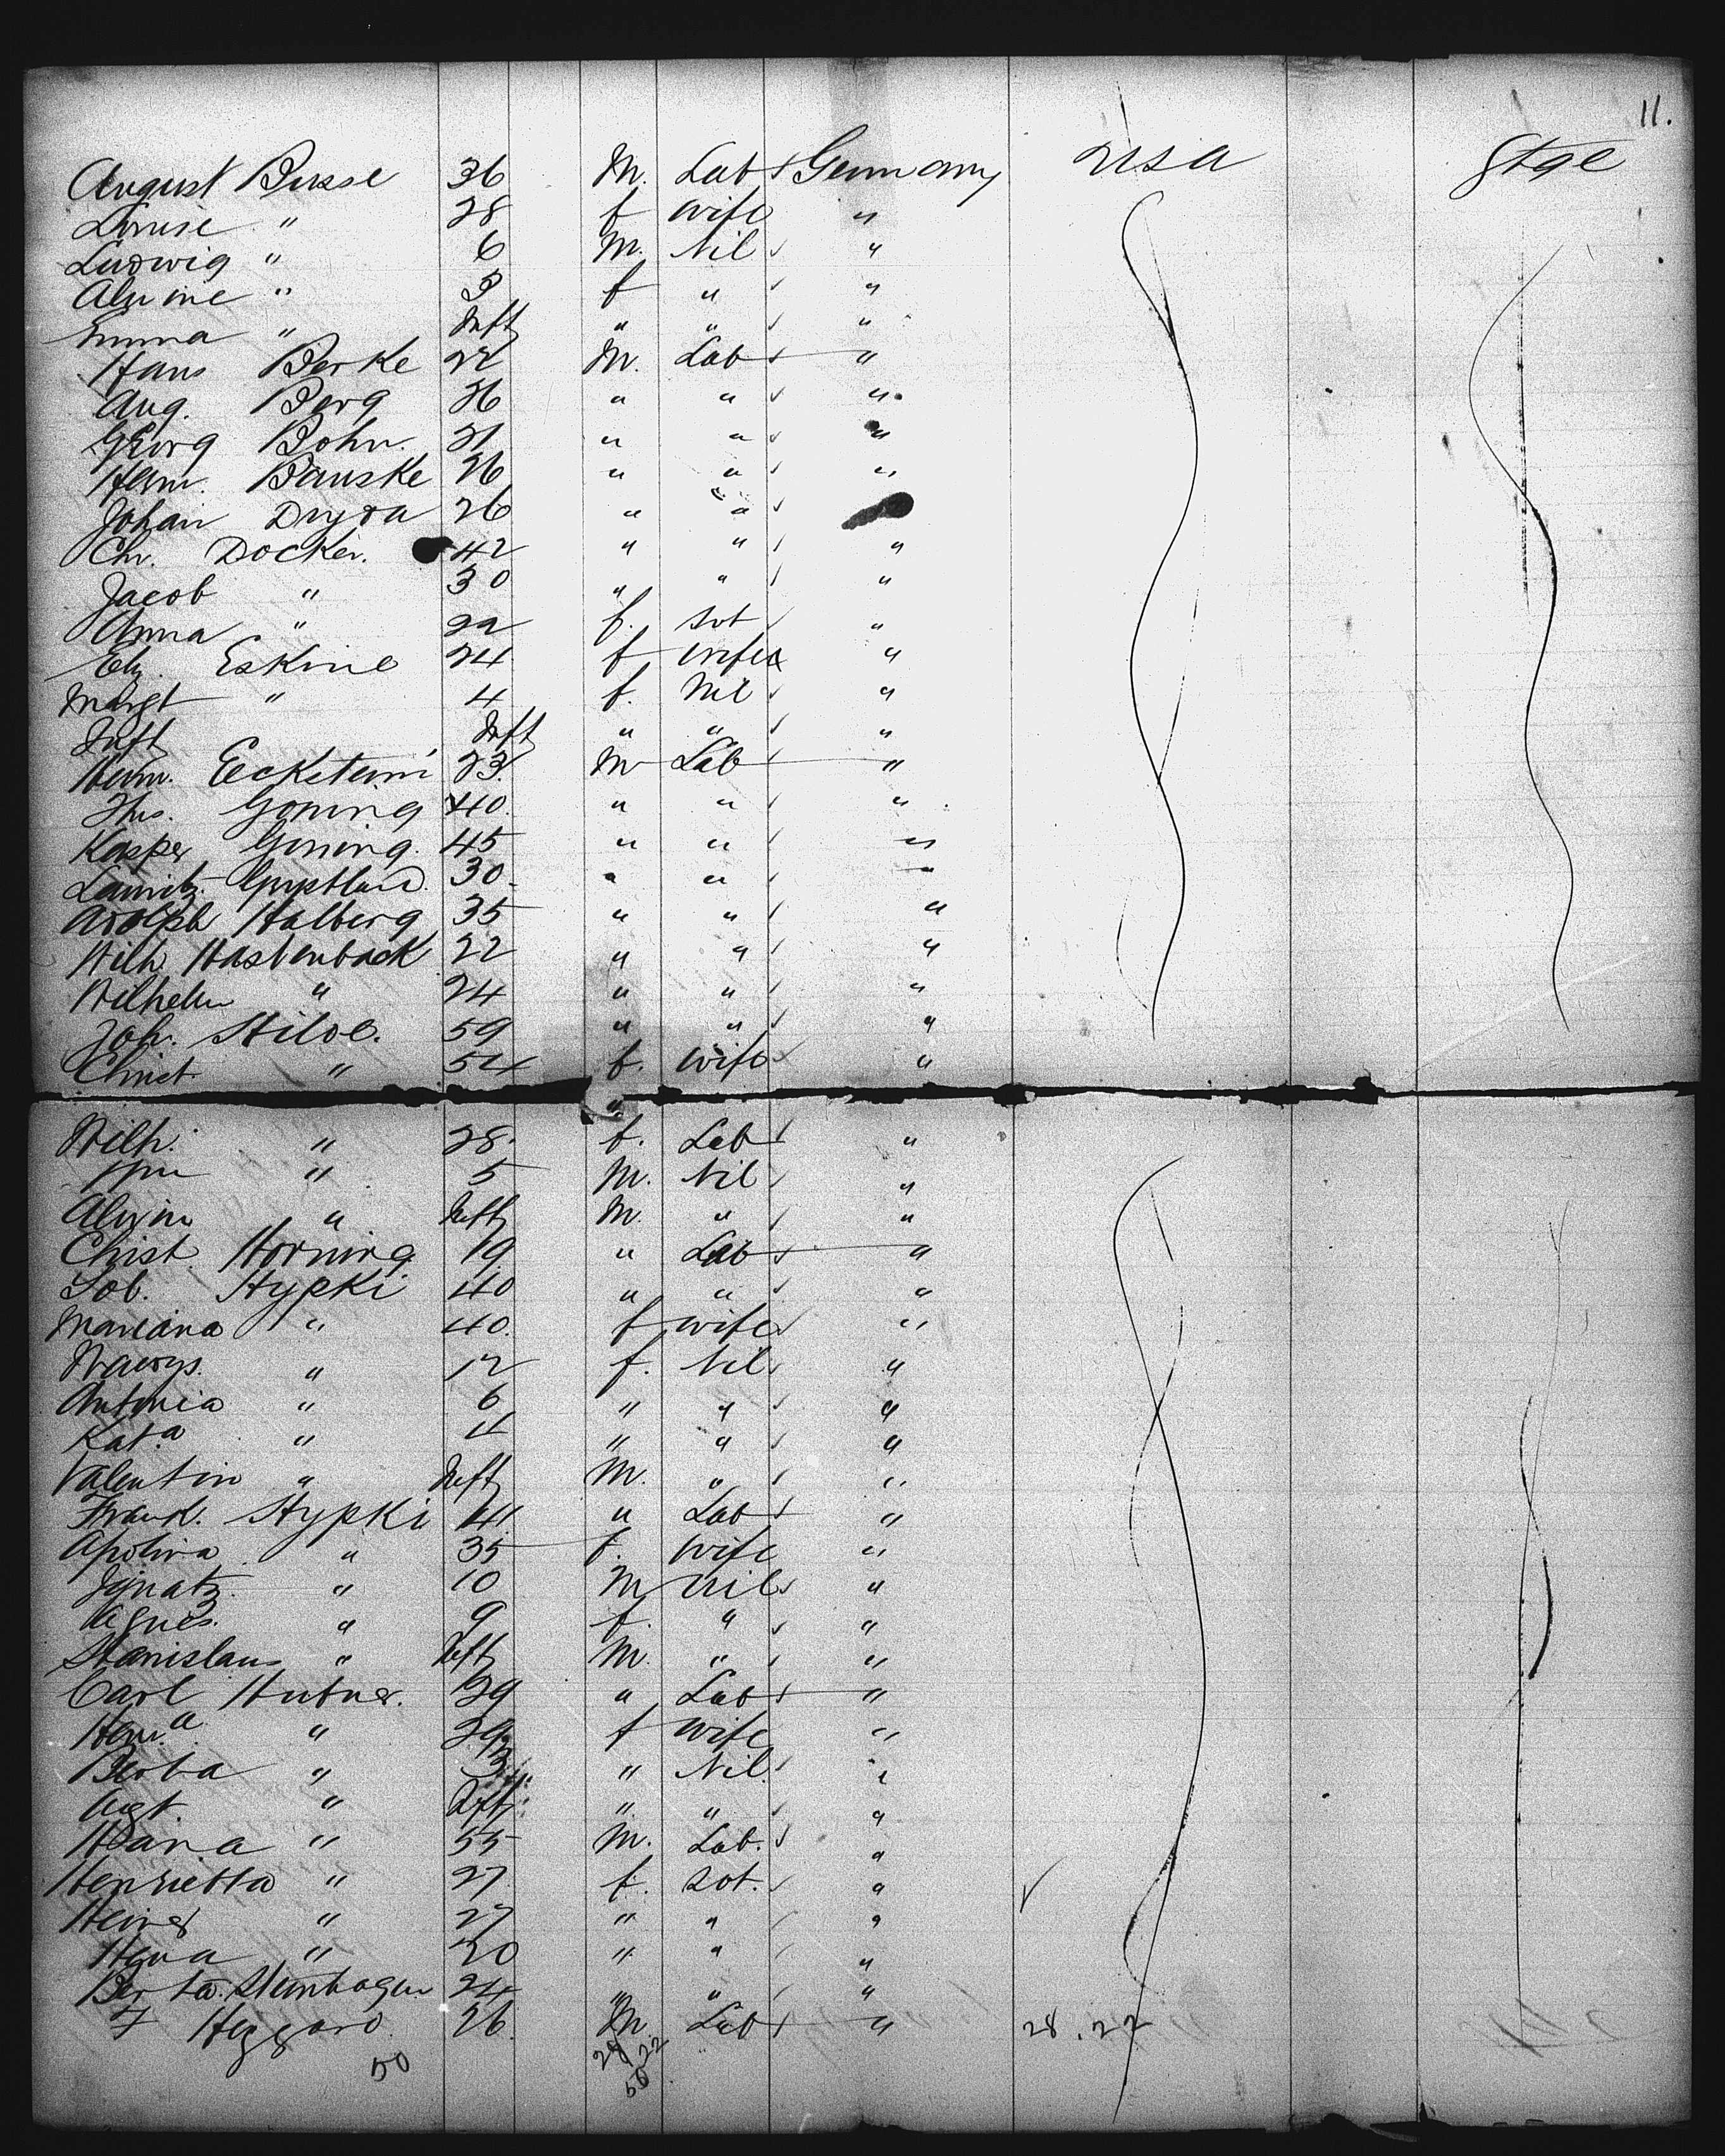 11.
August Busse 36 M. Lab Germany USA Stge
Louise " 28 f wife "
Ludwig " 6 M. Nil "
Alwine " 3 f " "
Emma " Inft " " "
Hans Berke 22 M. Lab "
Aug. Berg 26 " " "
Georg Bohn. 21 " " "
Herm. Bauske 26 " " "
Johan Dryda 26 " " "
Chr. Docker. 42 " " "
Jacob " 30 " " "
Anna " 22 f. Sot "
Elz. Eskine 24 f wife "
Margt " 4 f. Nil "
Inft Inft " " "
Herm. Eckstein 23. M Lab "
Ths. Goning 40. " " "
Kasper Goning. 45 " " "
30. " " "
Adolph Halberg 35 " " "
Wilh. Hastenback 22 " " "
Wilhelm " 24 " " "
Joh. Hilde. 59 " " "
Christ. " 54 f. wife "
"
Wilh. " 28. f. Lab "
Hm " 5 M. Nil "
Alwin " Inft M. " "
Christ. Horning 19 " Lab "
Lob. Hypki 40 " " "
Mariana " 40. f wife "
Nawrys. " 12 f. Nil "
Antonia " 6 " " "
Kata " 4 " " "
Valentin " Inft M. " "
Frank. Hypki 41. " Lab "
Apolina " 35 f. Wife "
Ignatz. " 10 M Nil "
Agnes. " 9 f. " "
Stanislaus " Inft M. " "
Carl Hubner. 29 " Lab "
Herma " 29 f wife "
Berta " 3 " Nil. "
Agt. " Inft " " "
" 55 M. Lab. "
Henrietta " 27 f. Sot. "
" 27 " " "
" 20 " " "
Berta. Steinhagen 24 " " "
F Heggard. 26. M Lab " 28.22
50 28/22
50